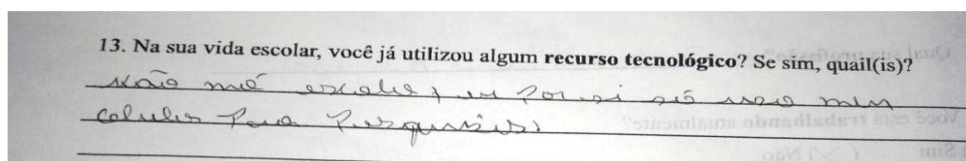 13. Na sua vida escolar, você já utilizou algum recurso tecnológico? Se sim, quail(is)?
Não escola, eu por si só uso meu
celular para